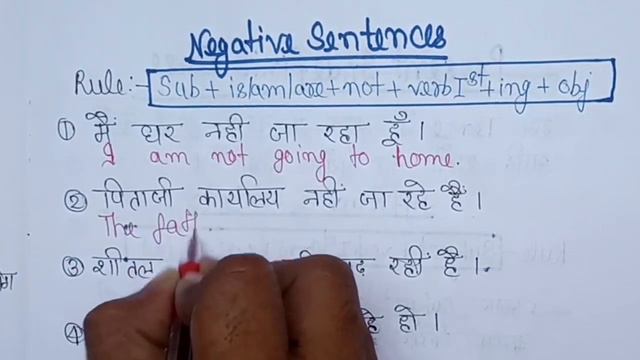 Negative Sentences
Rule:- Sub + is/am/are + not + verb Ist + ing + obj
① मैं घर नही जा रहा हूँ।
I am not going to home.
② पिताजी कार्यालय नहीं जा रहे हैं।
The fat
③ शीतल रहीं है।
④ हो।